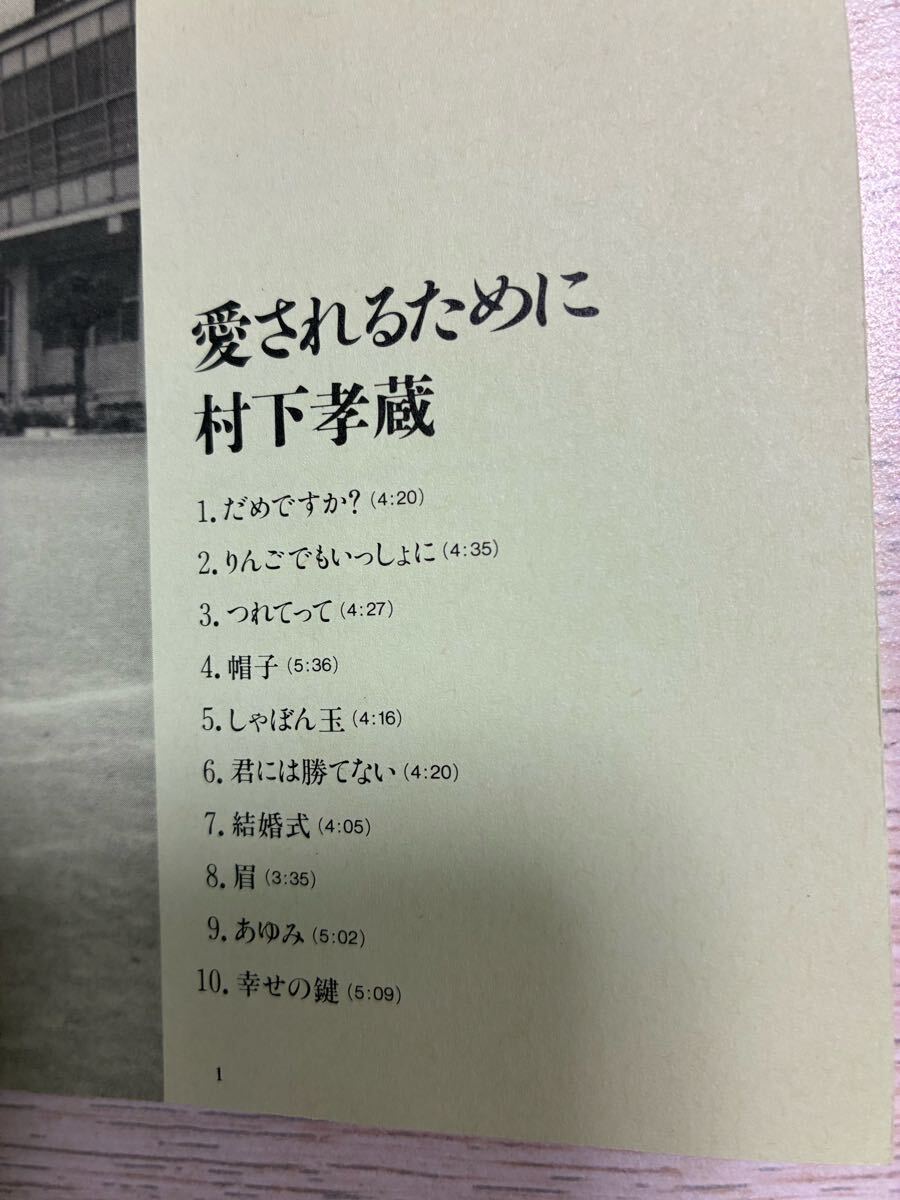 愛されるために
村下孝蔵
1.だめですか?(4:20)
2.りんごでもいっしょに(4:35)
3.つれてって(4:27)
4.帽子(5:36)
5.しゃぼん玉(4:16)
6.君には勝てない(4:20)
7.結婚式(4:05)
8.眉(3:35)
9.あゆみ(5:02)
10.幸せの鍵(5:09)
1